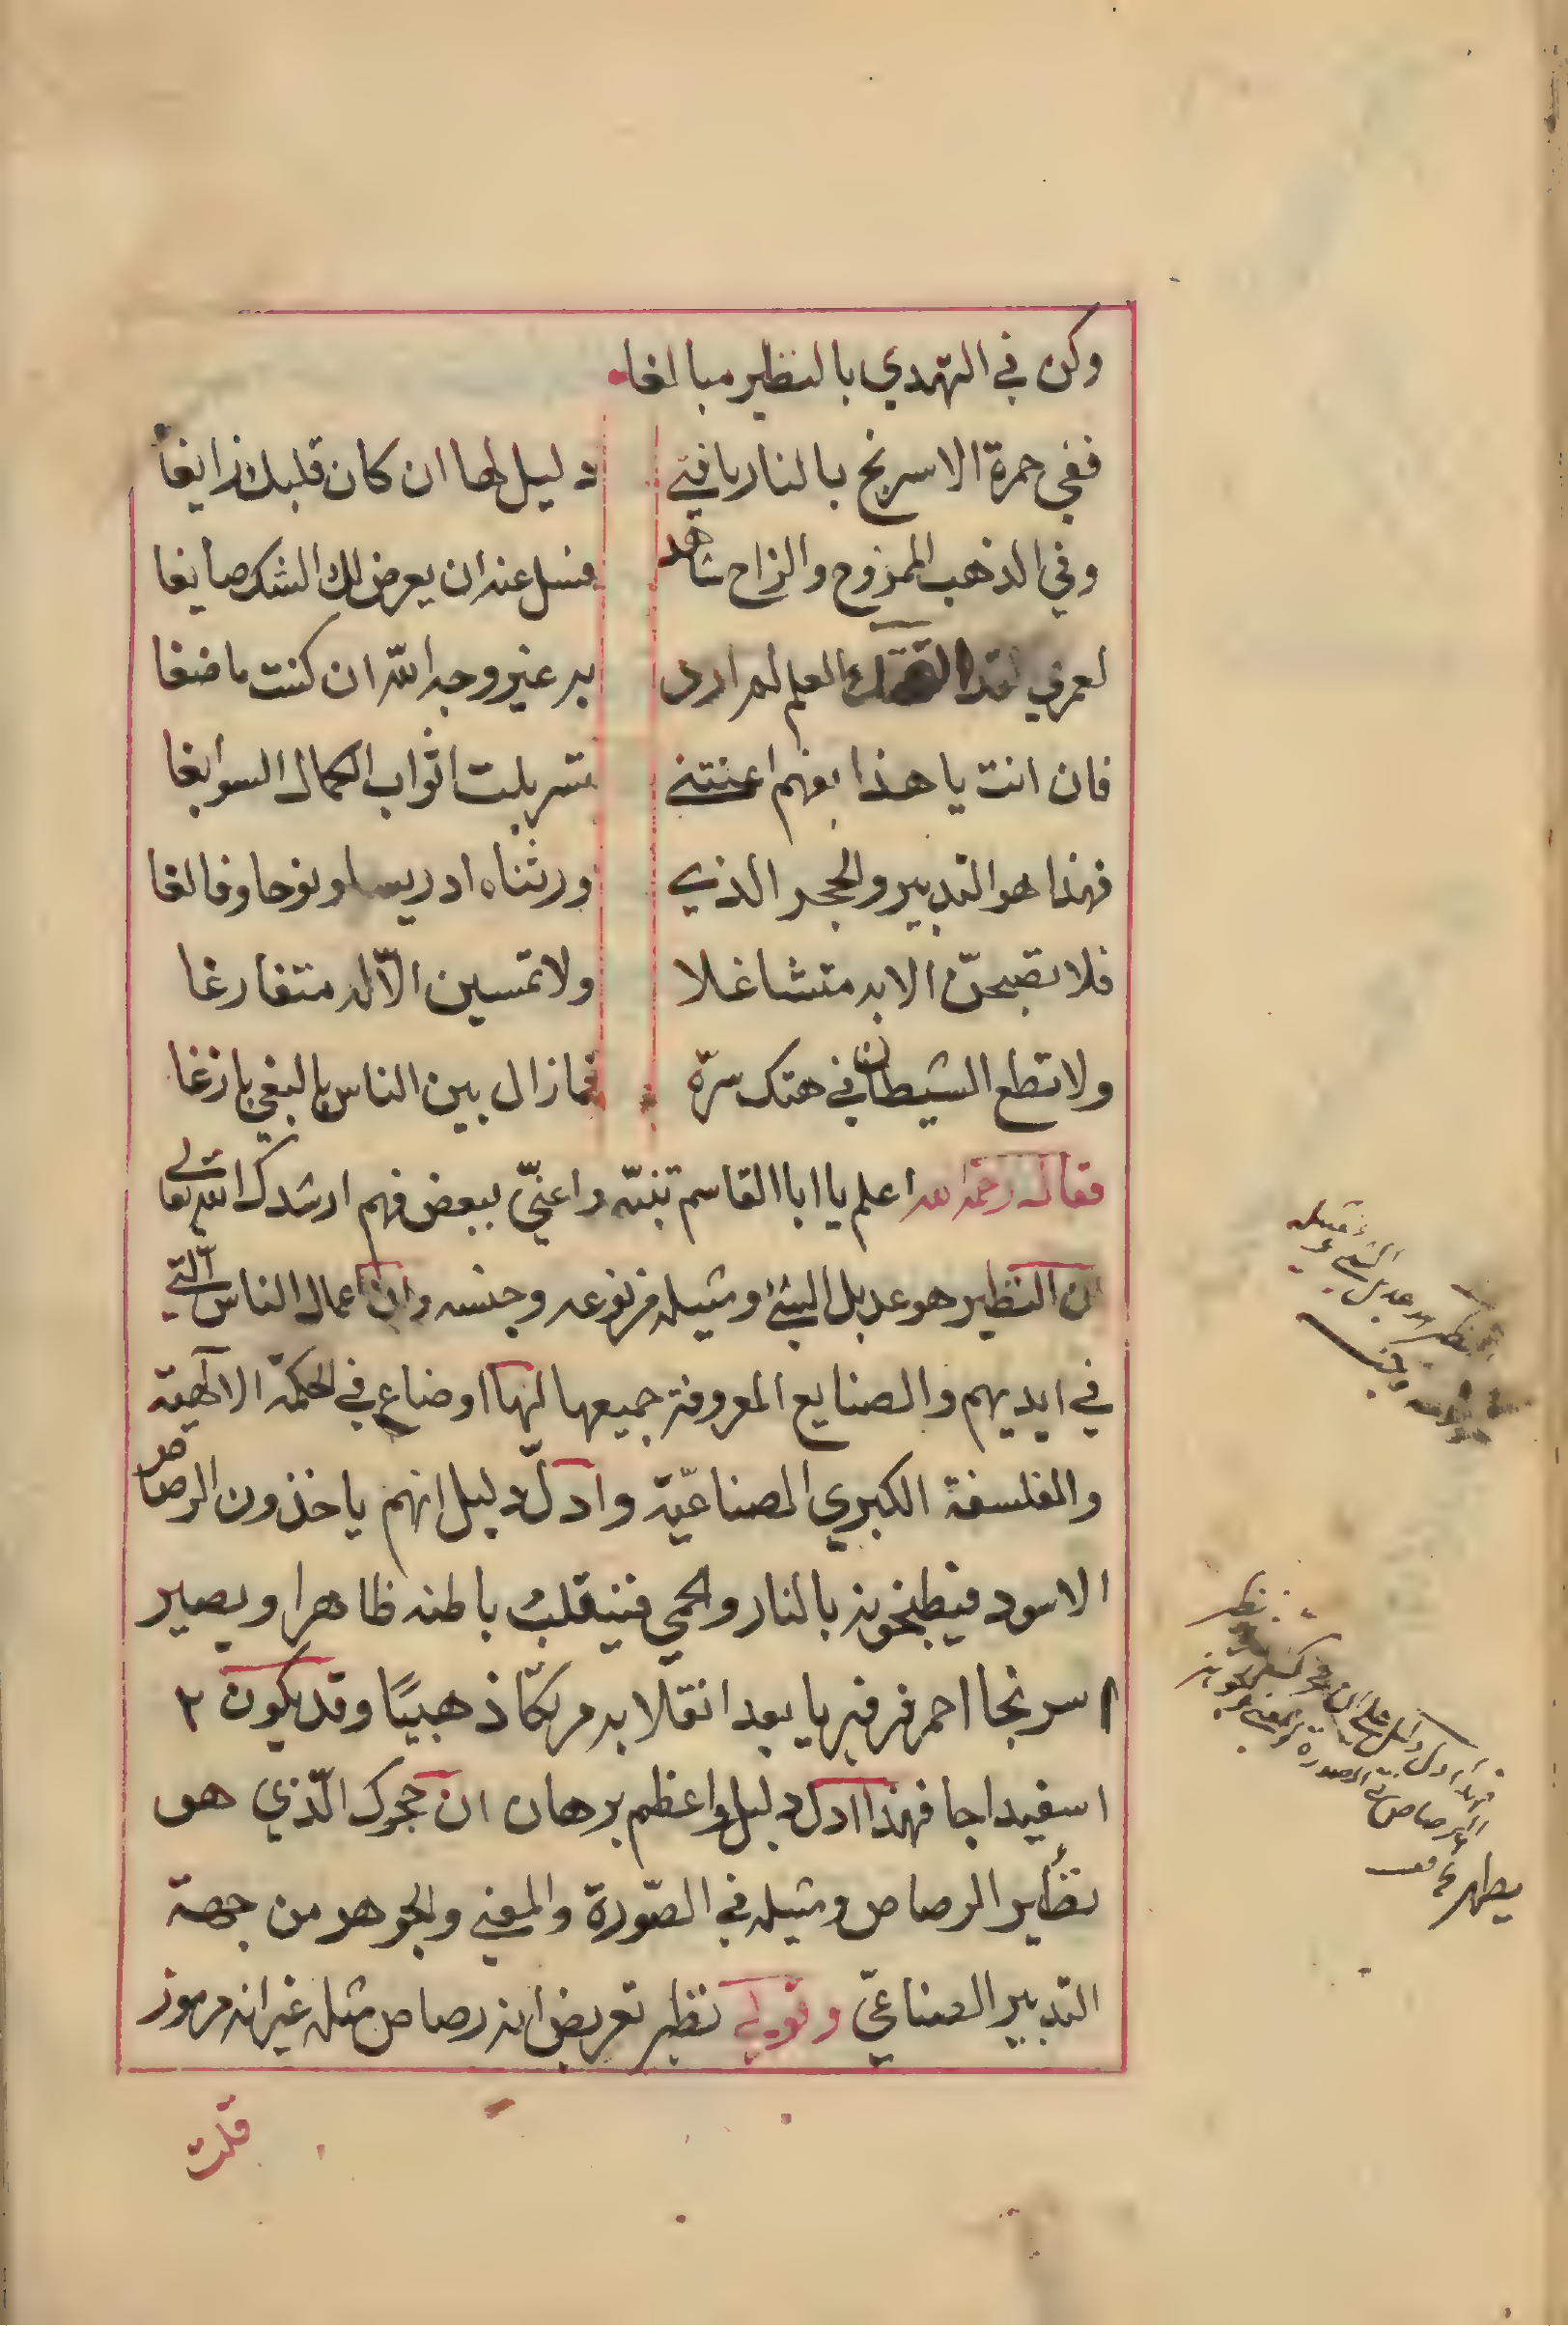 وكن في التهدي بالنظير مبالغا
ففي حمرة الاسرنج بالنار يا فتى دليل لها ان كان قلبك زايغا
وفي الذهب الممزوج والزاج شاهد فسل عنه ان يعرض لك الشك صايغا
لعمري لقد العلم لم ارد به غير وجه الله ان كنت ماضغا
فان انت يا هذا بفهم اعنتني تسربلت اثواب الكمال السوابغا
فهذا هو التدبير والحجر الذي ورثناه ادريسا ونوحا وفالغا
فلا تصبحن الا به متشاغلا ولا تمسين الا له متفارغا
ولا تطع الشيطان في هتك سره فما زال بين الناس بالبغي نازغا
فقال رحمه الله اعلم يا ابا القاسم تنبه واعني ببعض فهم ارشدك الله تعالى
ان النظير هو عديل الشئ ومثيله من نوعه وجنسه وان اعمال الناس التي
في ايديهم والصنايع المعروفة جميعها لها اوضاع في الحكمة الالهية
والفلسفة الكبرى الصناعية وادل دليل انهم ياخذون الرصاص
الاسود فيطبخونه بالنار والحمى فينقلب باطنه ظاهرا ويصير
اسرنجا احمر فرفيريا بعد انقلابه مرتكا ذهبيا وقد يكون
اسفيداجا فهذا ادل دليل واعظم برهان ان حجرك الذي هو
نظير الرصاص ومثيله في الصورة والمعنى والجوهر من جهة
التدبير الصناعي وقولي نظير تعريض انه رصاص مثله غير انه مرموز
قلت